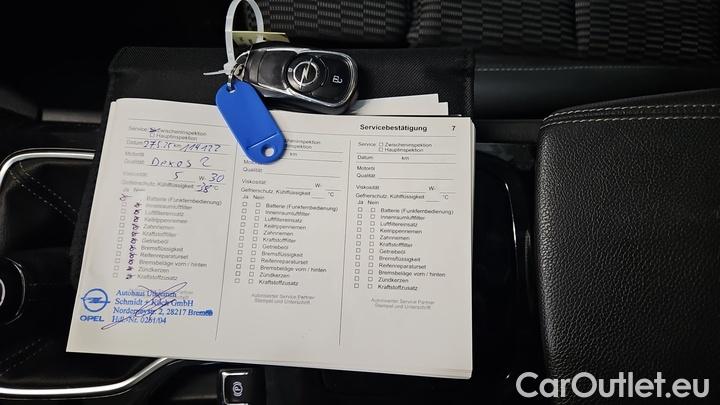 Servicebestätigung 7
Service: Zwischeninspektion
Hauptinspektion
Datum km 114127
Motoröl
Qualität: Dexos 2
Viskosität: 5 W- 30
Gefrierschutz, Kühlflüssigkeit °C
Ja Nein
Batterie (Funkfernbedienung)
Innenraumluftfilter
Luftfiltereinsatz
Keilrippenriemen
Zahnriemen
Kraftstofffilter
Getriebeöl
Bremsflüssigkeit
Reifenreparaturset
Bremsbeläge vorn / hinten
Zündkerzen
Kraftstoffzusatz
OPEL
Autohaus
Schmidt + Koch GmbH
2, 28217 Bremen
Hdl.-Nr. 0261/04
Service: Zwischeninspektion
Hauptinspektion
Datum km
Motoröl
Qualität
Viskosität: W-
Gefrierschutz, Kühlflüssigkeit °C
Ja Nein
Batterie (Funkfernbedienung)
Innenraumluftfilter
Luftfiltereinsatz
Keilrippenriemen
Zahnriemen
Kraftstofffilter
Getriebeöl
Bremsflüssigkeit
Reifenreparaturset
Bremsbeläge vorn / hinten
Zündkerzen
Kraftstoffzusatz
Autorisierter Service Partner
Stempel und Unterschrift
Service: Zwischeninspektion
Hauptinspektion
Datum km
Motoröl
Qualität
Viskosität: W-
Gefrierschutz, Kühlflüssigkeit °C
Ja Nein
Batterie (Funkfernbedienung)
Innenraumluftfilter
Luftfiltereinsatz
Keilrippenriemen
Zahnriemen
Kraftstofffilter
Getriebeöl
Bremsflüssigkeit
Reifenreparaturset
Bremsbeläge vorn / hinten
Zündkerzen
Kraftstoffzusatz
Autorisierter Service Partner
Stempel und Unterschrift
P
CarOutlet.eu